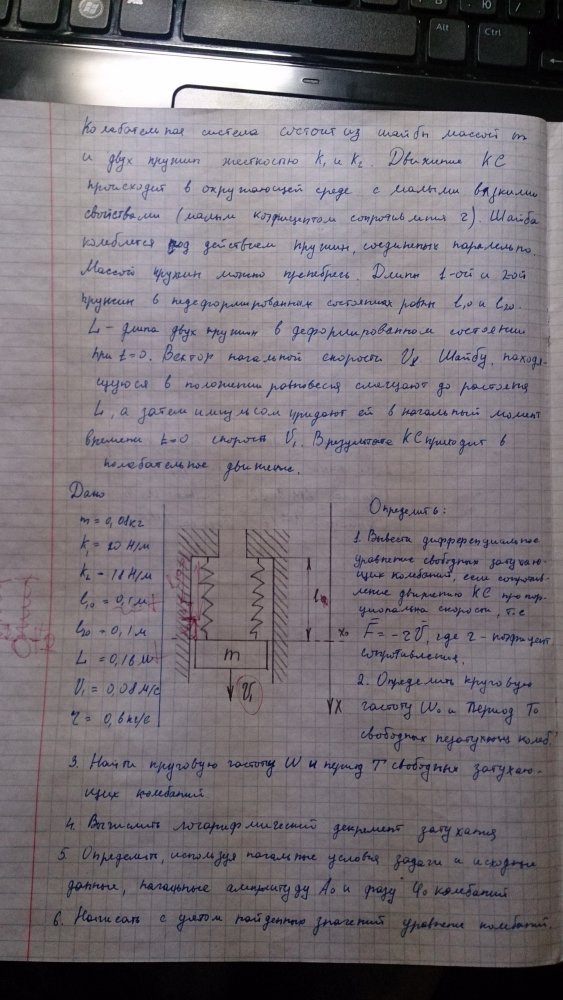 Alt
Ctrl
Колебательная система состоит из шайбы массой m
и двух пружин жесткостью K₁ и K₂. Движение КС
происходит в окружающей среде с малыми вязкими
свойствами (малым коэфициентом сопротивления r). Шайба
колеблется под действием пружин, соединеных паралельно.
Массой пружин можно пренебресь. Длины 1-ой и 2-ой
пружин в недеформированных состояниях равны l₁₀ и l₂₀.
L - длина двух пружин в деформированном состоянии
при t=0. Вектор начальной скорости V₁. Шайбу, находя-
щуюся в положении равновесия смещают до растояния
L, а затем импульсом придают ей в начальный момент
времени t=0 скорость V₁. В результате КС приходит в
колебательное движение.
Дано
m = 0,01кг
K₁ = 20 Н/м
K₂ = 18 Н/м
l₁₀ = 0,1 м
l₂₀ = 0,1 м
L = 0,16 м
V₁ = 0,08 м/с
r = 0,6 кг/с
m
V₁
x₀
X
Определить:
1. Вывести дифференциальное
уравнение свободных затухаю-
щих колебаний, если сопротив-
ление движению КС пропор-
ционально скорости, т.е
F = -rV, где r - коэфицент
сопротивления.
2. Определить круговую
частоту W₀ и Период T₀
свободных незатухающ колеб.
3. Найти круговую частоту W и период T свободных затухаю-
щих колебаний
4. Вычислить логарифмический декремент затухания
5. Определить, используя начальные условия задачи и исходные
данные, начальные амплитуду A₀ и фазу φ₀ колебаний
6. Написать с учетом найденных значений уравнение колебаний.